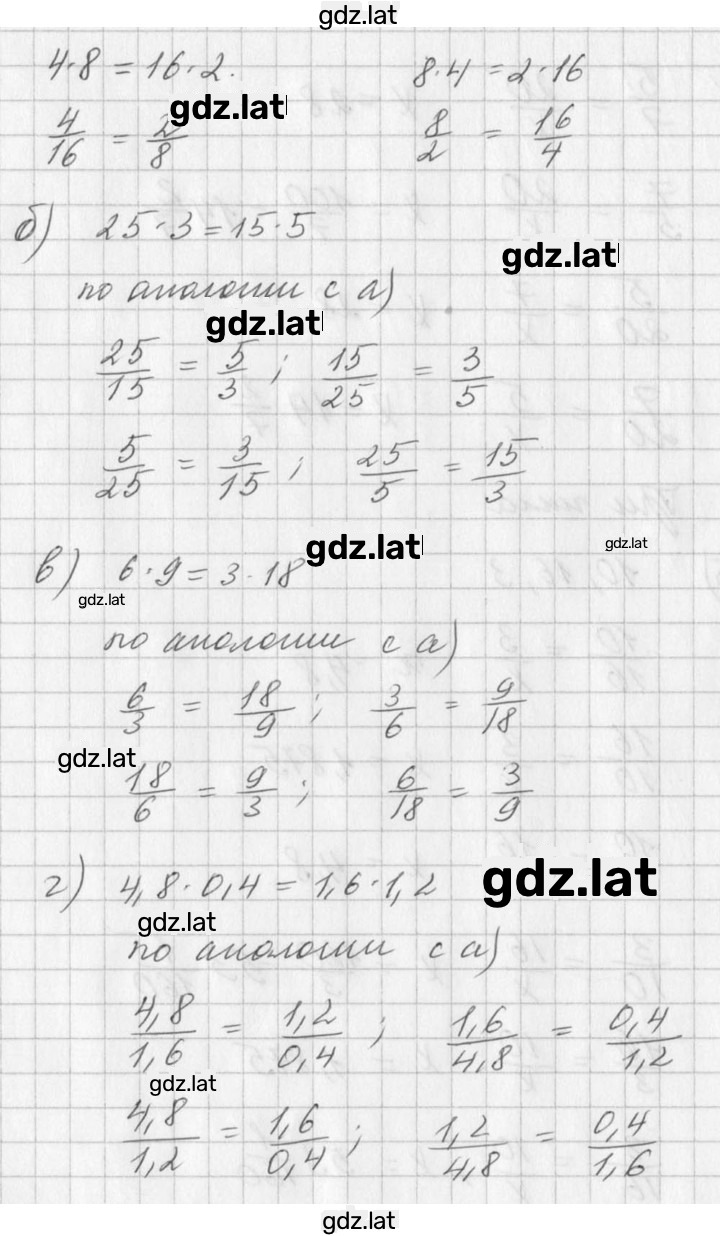 gdz.lat
4·8 = 16·2. 8·4 = 2·16
gdz.lat
4/16 = 2/8 8/2 = 16/4
б) 25·3 = 15·5
gdz.lat
по аналогии с а)
gdz.lat
25/15 = 5/3 ; 15/25 = 3/5
5/25 = 3/15 ; 25/5 = 15/3
gdz.lat
gdz.lat
в) 6·9 = 3·18
gdz.lat
по аналогии с а)
6/3 = 18/9 ; 3/6 = 9/18
gdz.lat
18/6 = 9/3 ; 6/18 = 3/9
г) 4,8·0,4 = 1,6·1,2
gdz.lat
gdz.lat
по аналогии с а)
4,8/1,6 = 1,2/0,4 ; 1,6/4,8 = 0,4/1,2
gdz.lat
4,8/1,2 = 1,6/0,4 ; 1,2/4,8 = 0,4/1,6
gdz.lat